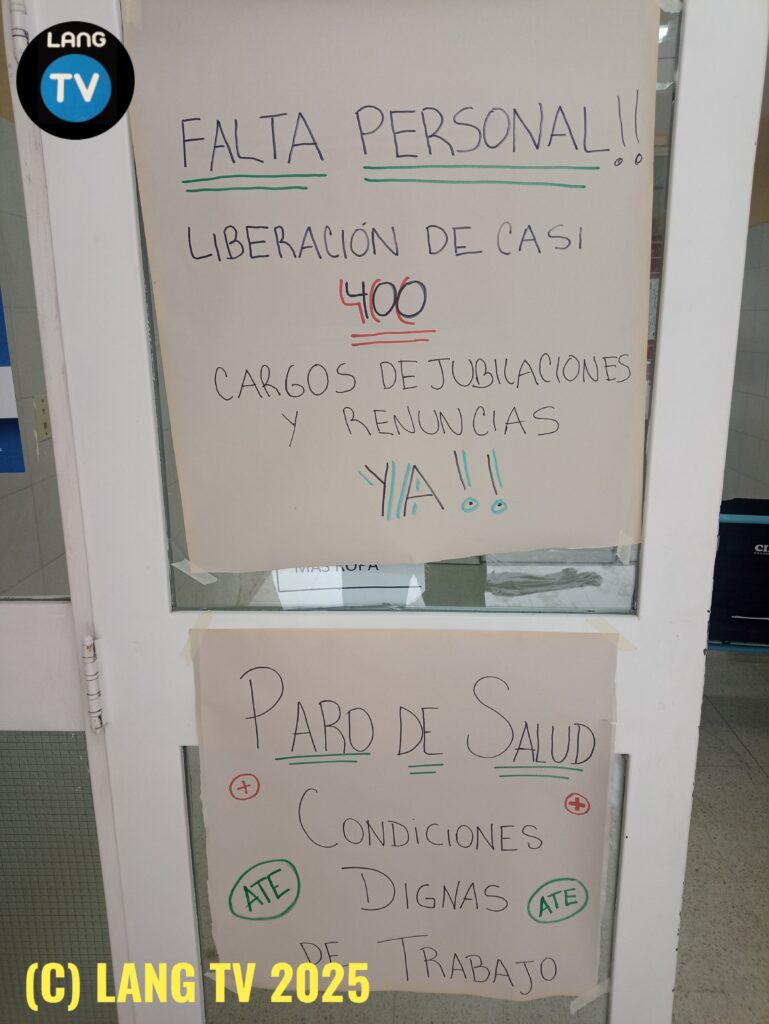 LANG
TV
FALTA PERSONAL!!
LIBERACIÓN DE CASI
400
CARGOS DE JUBILACIONES
Y RENUNCIAS
YA!!
MAS ROPA
PARO DE SALUD
CONDICIONES
ATE DIGNAS ATE
DE TRABAJO
(C) LANG TV 2025